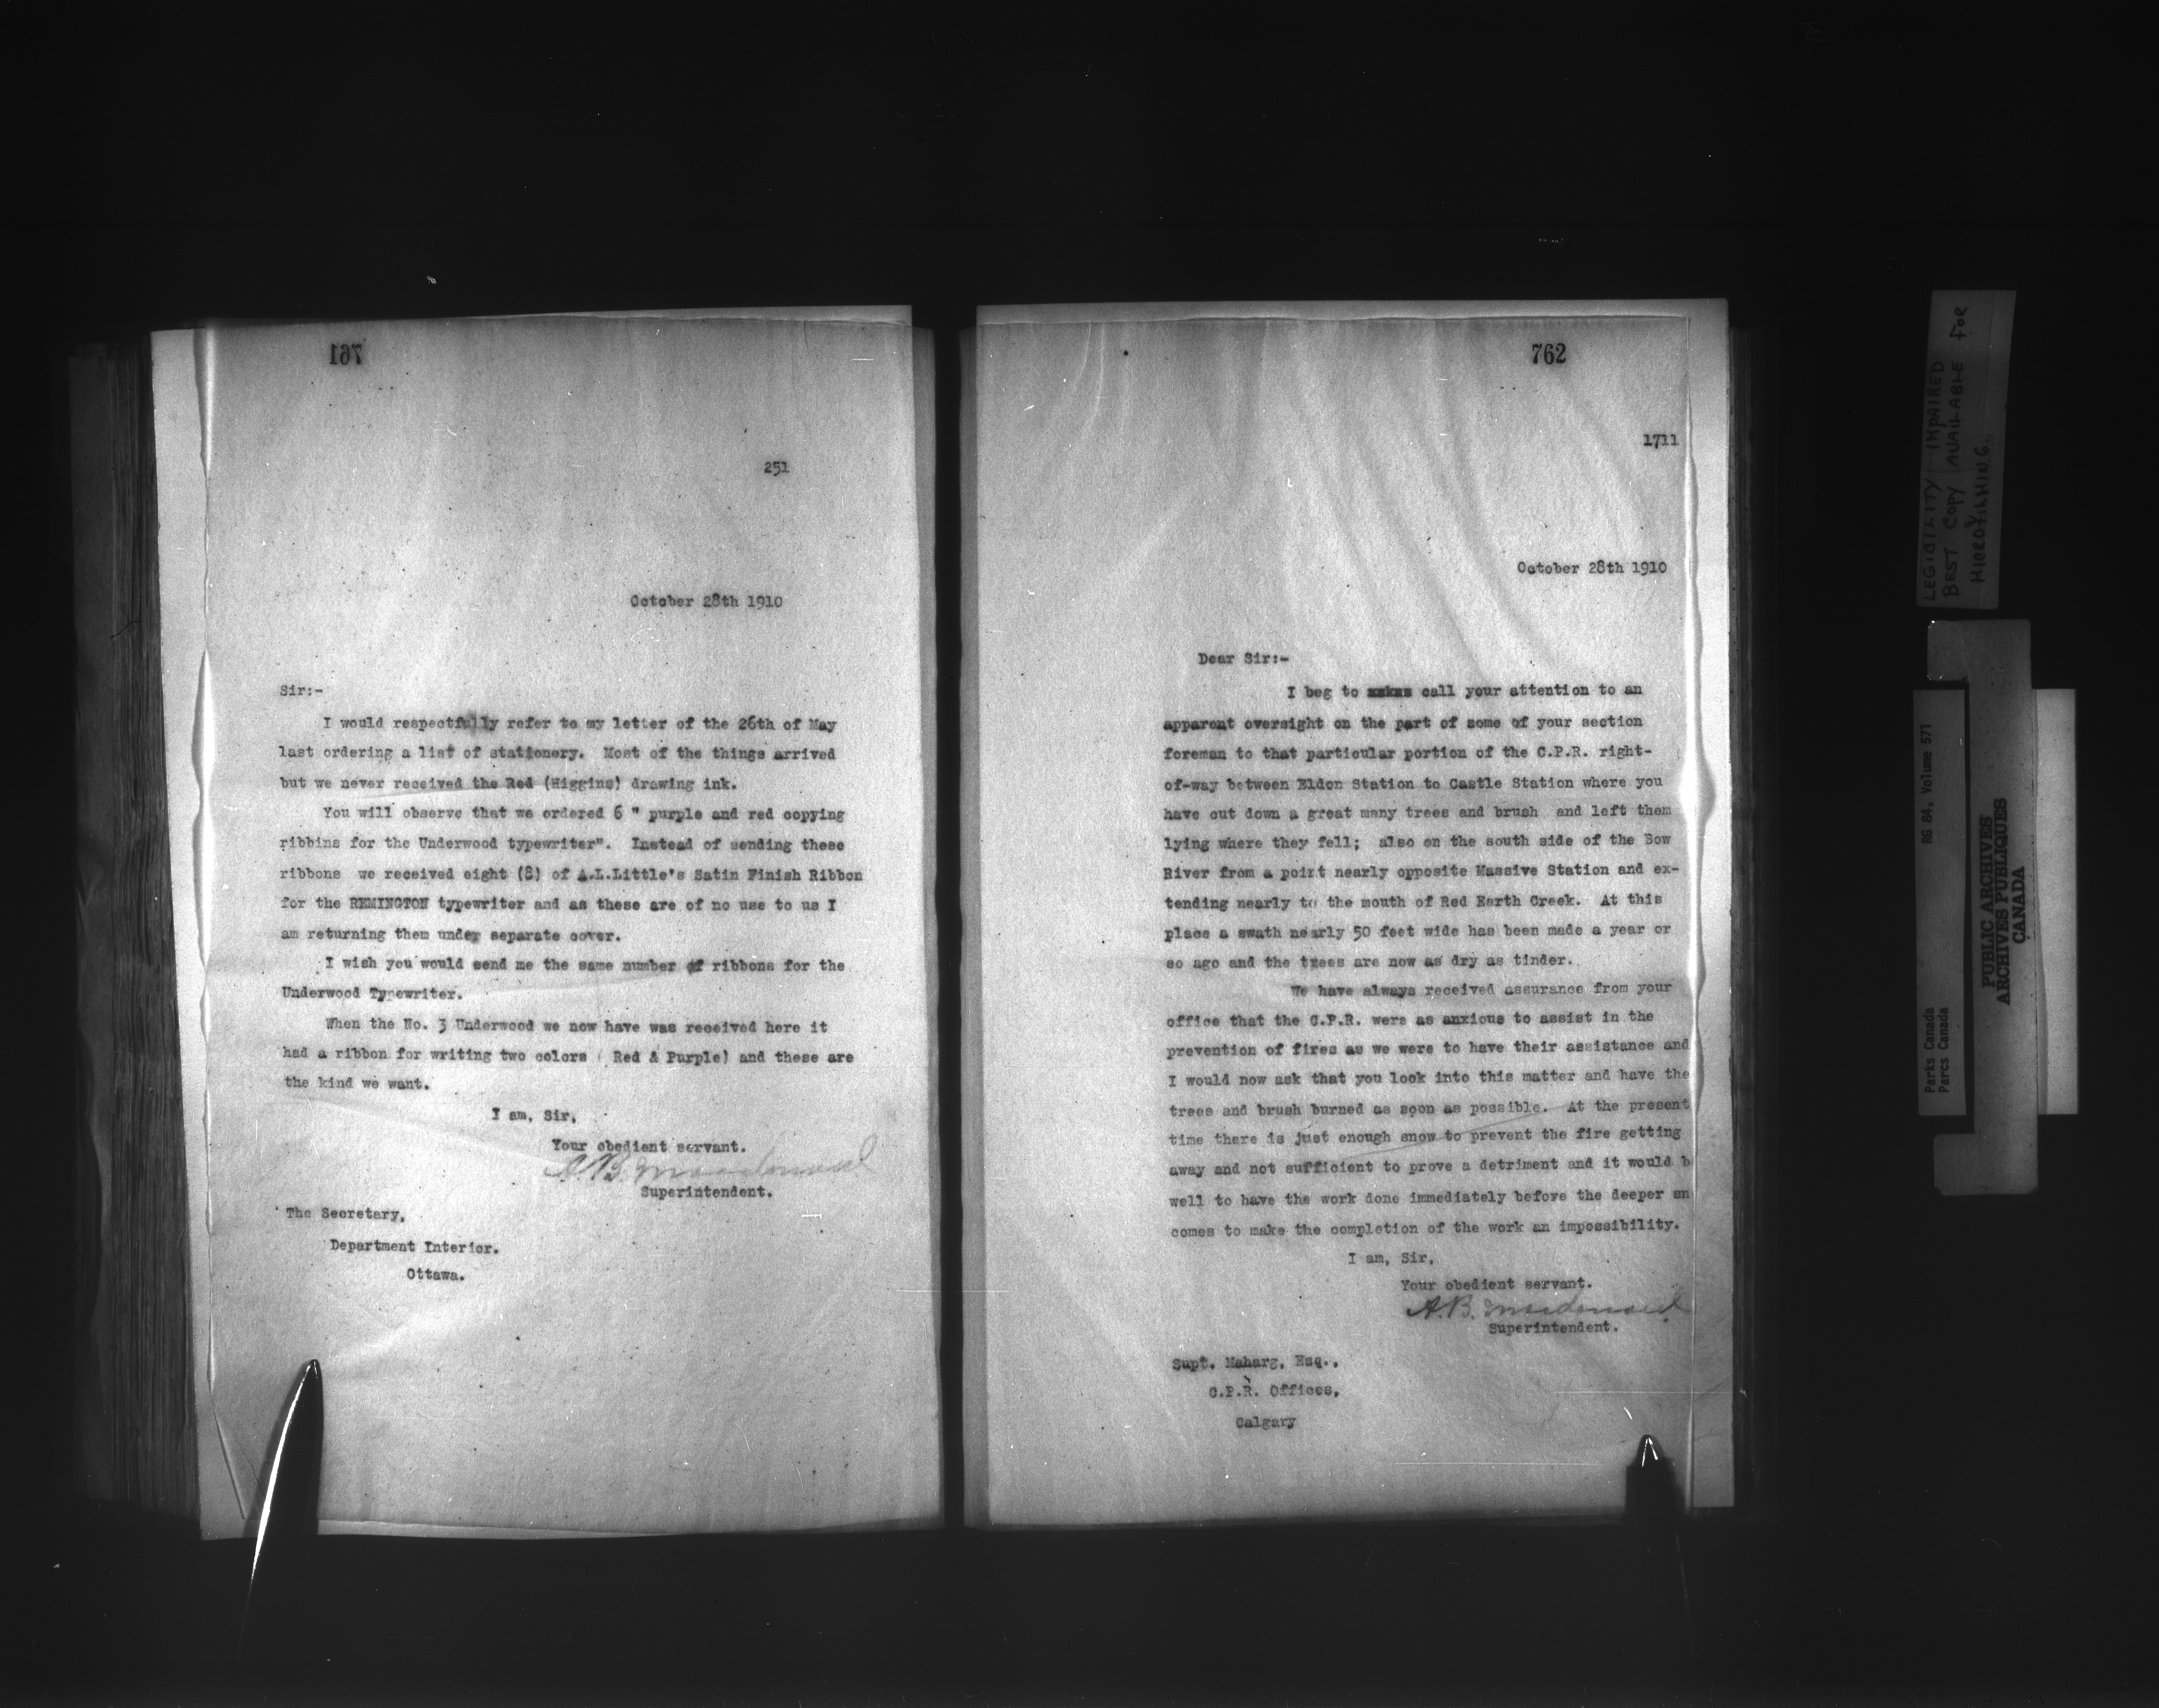 761
251
October 28th 1910
Sir:-
I would respectfully refer to my letter of the 26th of May
last ordering a list of stationery. Most of the things arrived
but we never received the Red (Higgins) drawing ink.
You will observe that we ordered 6 " purple and red copying
ribbins for the Underwood typewriter". Instead of sending these
ribbons we received eight (8) of A.L.Little's Satin Finish Ribbon
for the REMINGTON typewriter and as these are of no use to us I
am returning them under separate cover.
I wish you would send me the same number of ribbons for the
Underwood Typewriter.
When the No. 3 Underwood we now have was received here it
had a ribbon for writing two colors ( Red & Purple) and these are
the kind we want.
I am, Sir,
Your obedient servant.
A.B. Macdonald
Superintendent.
The Secretary,
Department Interior.
Ottawa.
762
1711
October 28th 1910
Dear Sir:-
I beg to call your attention to an
apparent oversight on the part of some of your section
foreman to that particular portion of the C.P.R. right-
of-way between Eldon Station to Castle Station where you
have cut down a great many trees and brush and left them
lying where they fell; also on the south side of the Bow
River from a point nearly opposite Massive Station and ex-
tending nearly to the mouth of Red Earth Creek. At this
place a swath nearly 50 feet wide has been made a year or
so ago and the trees are now as dry as tinder.
We have always received assurance from your
office that the C.P.R. were as anxious to assist in the
prevention of fires as we were to have their assistance and
I would now ask that you look into this matter and have the
trees and brush burned as soon as possible. At the present
time there is just enough snow to prevent the fire getting
away and not sufficient to prove a detriment and it would b
well to have the work done immediately before the deeper sn
comes to make the completion of the work an impossibility.
I am, Sir,
Your obedient servant.
A.B. Macdonald
Superintendent.
Supt. Maharg, Esq.,
C.P.R. Offices,
Calgary
LEGIBILITY IMPAIRED
BEST COPY AVAILABLE FOR
MICROFILMING.
RG 84, Volume 571
Parks Canada
Parcs Canada
PUBLIC ARCHIVES
ARCHIVES PUBLIQUES
CANADA